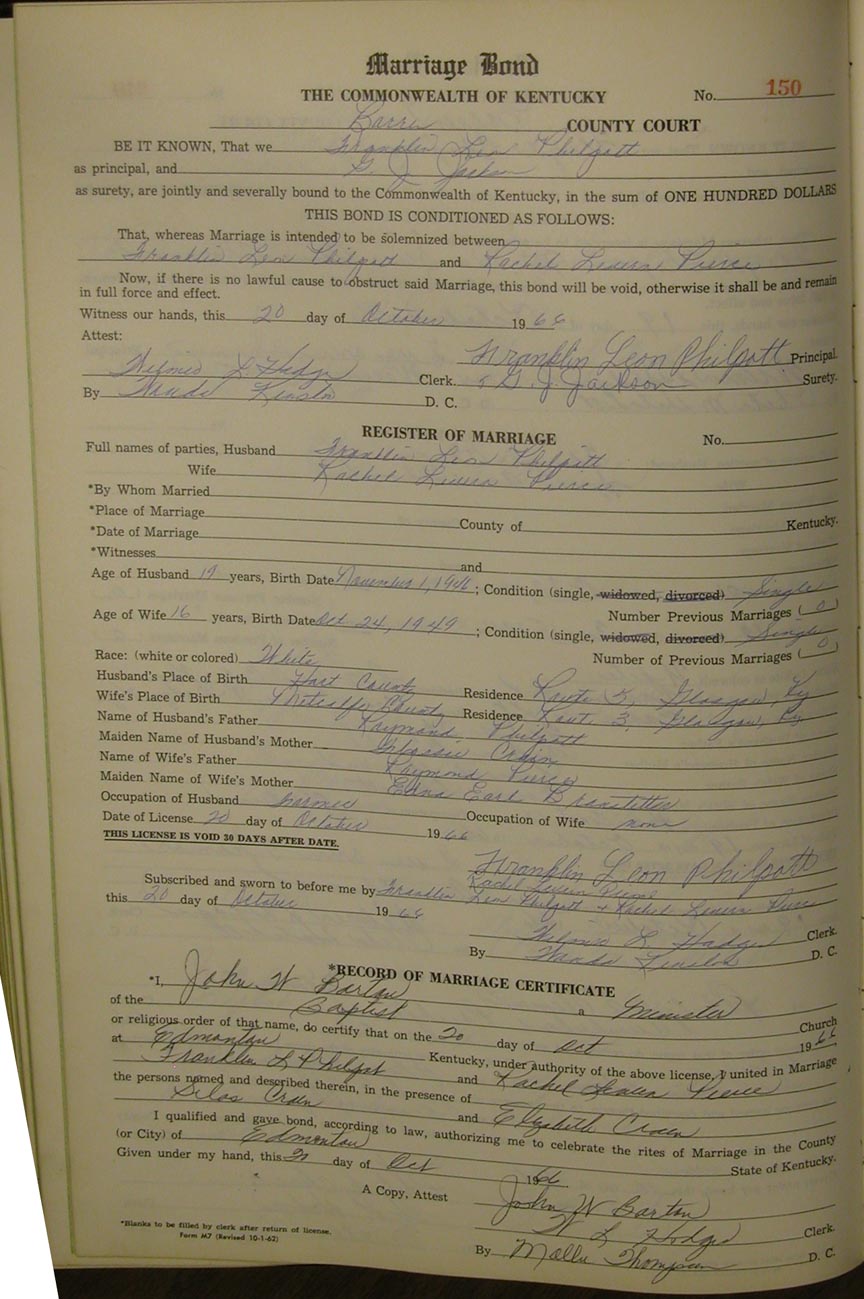 Marriage Bond
THE COMMONWEALTH OF KENTUCKY No. 150
Barren COUNTY COURT
BE IT KNOWN, That we Franklin Leon Philpott
as principal, and G. J. Jackson
as surety, are jointly and severally bound to the Commonwealth of Kentucky, in the sum of ONE HUNDRED DOLLARS
THIS BOND IS CONDITIONED AS FOLLOWS:
That, whereas Marriage is intended to be solemnized between
Franklin Leon Philpott and Rachel Pierce
Now, if there is no lawful cause to obstruct said Marriage, this bond will be void, otherwise it shall be and remain
in full force and effect.
Witness our hands, this 20 day of October 1966
Attest:
Franklin Leon Philpott Principal.
L Hodges Clerk. G. J. Jackson Surety.
By Wanda D. C.
REGISTER OF MARRIAGE No.
Full names of parties, Husband Franklin Leon Philpott
Wife Rachel Pierce
*By Whom Married
*Place of Marriage County of Kentucky.
*Date of Marriage
*Witnesses and
Age of Husband 19 years, Birth Date November 1, 1946; Condition (single, widowed, divorced) Single
Number Previous Marriages (0)
Age of Wife 16 years, Birth Date Oct 24, 1949; Condition (single, widowed, divorced) Single
Number of Previous Marriages (0)
Race: (white or colored) White
Husband's Place of Birth Hart County Residence Route 5, Glasgow, Ky
Wife's Place of Birth Metcalfe County Residence Route 3, Glasgow, Ky
Name of Husband's Father Raymond Philpott
Maiden Name of Husband's Mother Crain
Name of Wife's Father Raymond Pierce
Maiden Name of Wife's Mother Edna Earl Branstetter
Occupation of Husband Farmer Occupation of Wife none
Date of License 20 day of October 1966
THIS LICENSE IS VOID 30 DAYS AFTER DATE.
Franklin Leon Philpott
Rachel Pierce
Subscribed and sworn to before me by Franklin Leon Philpott + Rachel Pierce
this 20 day of October 1966
L. Hodges Clerk.
By Wanda D. C.
*RECORD OF MARRIAGE CERTIFICATE
*I, John W Barton a Minister
of the Baptist Church
or religious order of that name, do certify that on the 20 day of Oct 1966
at Edmonton Kentucky, under authority of the above license, I united in Marriage
Franklin L Philpot and Rachel Pierce
the persons named and described therein, in the presence of
Silas Crain and Elizabeth Crain
I qualified and gave bond, according to law, authorizing me to celebrate the rites of Marriage in the County
(or City) of Edmonton State of Kentucky.
Given under my hand, this day of Oct 1966.
John W Barton
A Copy, Attest
W L Hodges Clerk.
By Thompson D. C.
*Blanks to be filled by clerk after return of license.
Form M7 (Revised 10-1-62)